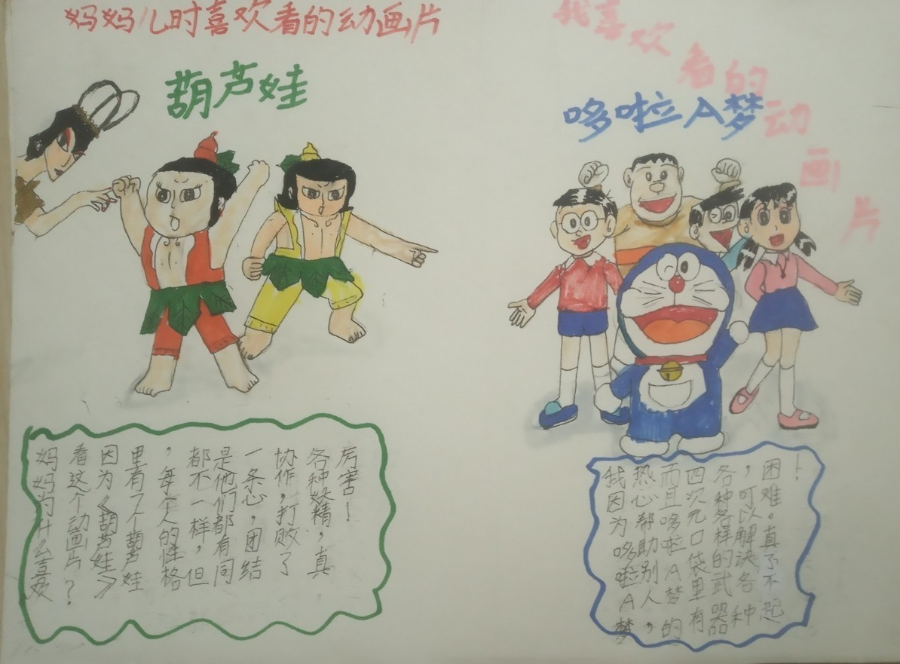 妈妈儿时喜欢看的动画片
葫芦娃
妈妈为什么喜欢
看这个动画片？
因为《葫芦娃》
里有7个葫芦娃
，每个人的性格
都不一样，但
是他们都有同
一条心，团结
协作，打败了
各种妖精，真
厉害！
我喜欢看的动画片
哆啦A梦
我因为哆啦A梦
热心帮助别人，
而且哆啦A梦的
四次元口袋里有
各种各样的武器
，可以解决各种
困难。真了不起
！